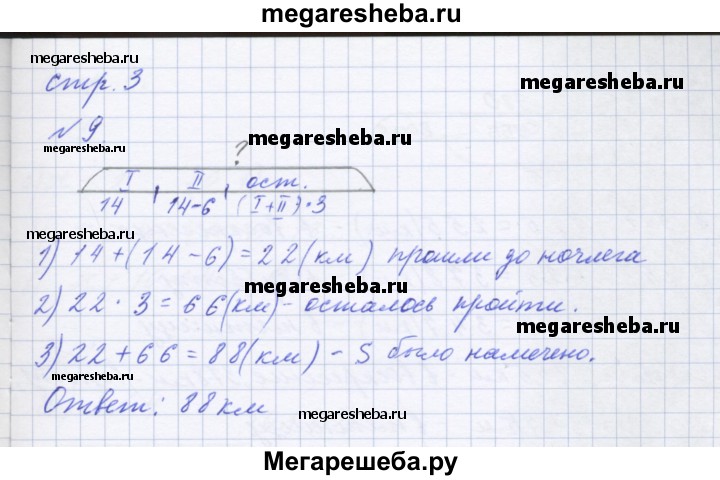 megaresheba.ru
megaresheba.ru
стр. 3
megaresheba.ru
№ 9
megaresheba.ru
megaresheba.ru
?
I II ост.
14 14-6 (I+II)·3
megaresheba.ru
1) 14+(14-6)=22(км) прошли до ночлега
megaresheba.ru
2) 22·3=66(км)-осталось пройти.
megaresheba.ru
3) 22+66=88(км)-S было намечено.
megaresheba.ru
Ответ: 88км
megaresheba.ru
Мегарешеба.ру